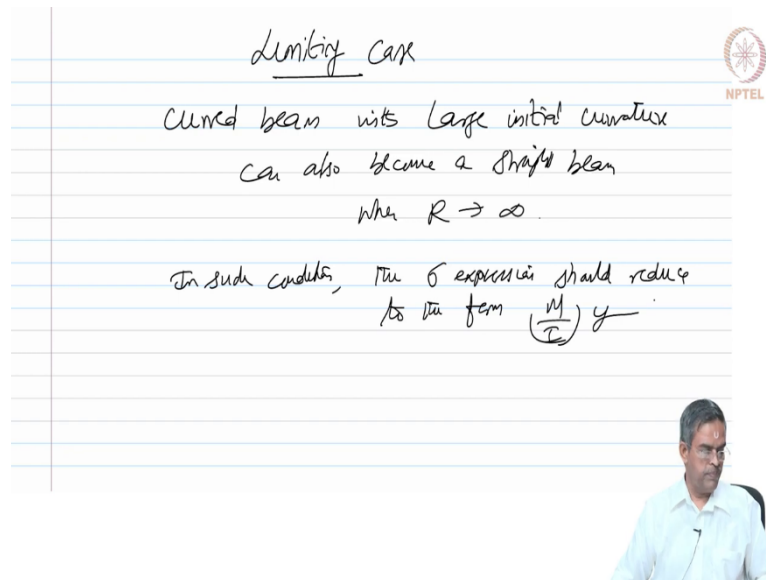 Limiting Case
NPTEL
Curved beam with large initial curvature
can also become a straight beam
when R → ∞.
In such condition, the σ expression should reduce
to the form (M/I) y